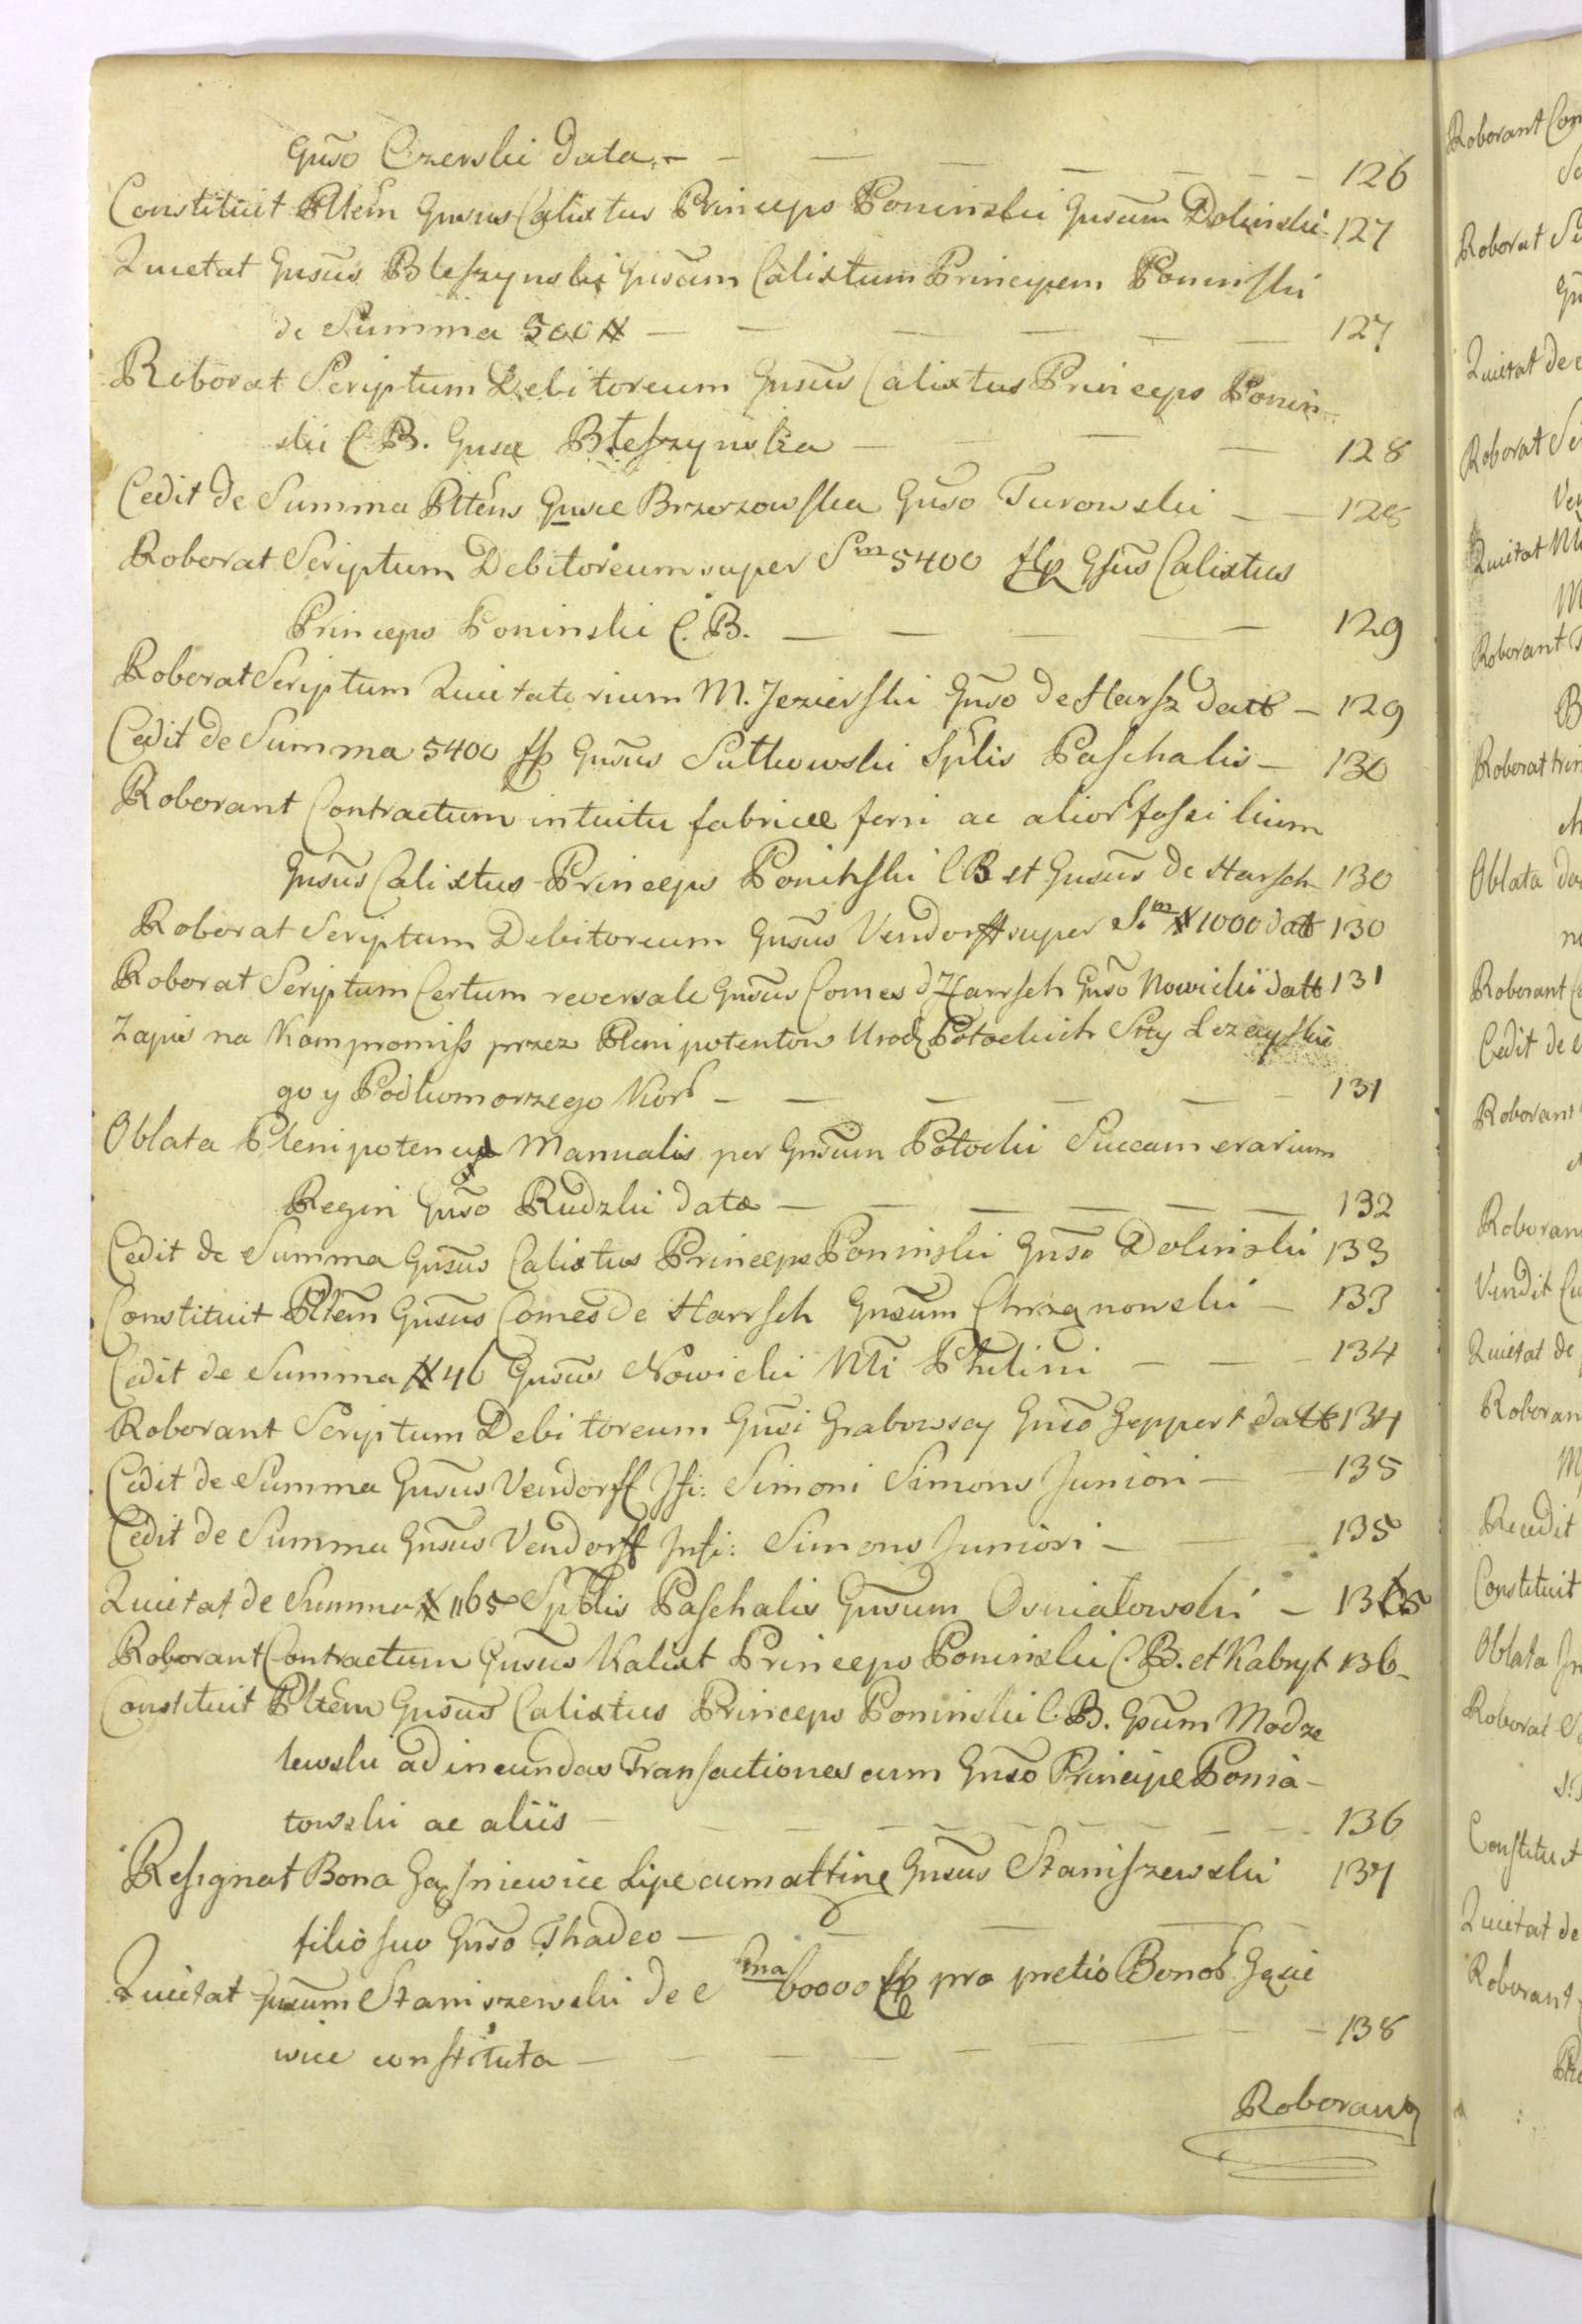 Gnso Czerski data — 126
Constituit Pltem Gnsus Calixtus Princeps Poninski Gnsum Dolinski 127
Quietat Gnsus Bleszynski Gnsum Calixtum Principem Poninski
de Summa 500 # — 127
Roborat Scriptum Debitoreum Gnsus Calixtus Princeps Ponin-
ski C. B. Gnsæ Bleszynska — 128
Cedit de Summa Pltens Gnsæ Brzozowska Gnso Turowski — 128
Roborat Scriptum Debitoreum super Sm 5400 flp Gsus Calixtus
Princeps Poninski C. B. — 129
Roborat Scriptum Quietatorium M. Jezierski Gnso de Harsz datt — 129
Cedit de Summa 5400 fp Gnsus Sulkowski Splis Paschalis — 130
Roborant Contractum intuitu fabricæ ferri ac alior fossilium
Gnsus Calixtus Princeps Poninski C B et Gnsus de Harsch 130
Roborat Scriptum Debitoreum Gnsus Vendorff super S.m # 1000 datt 130
Roborat Scriptum Certum reversale Gnsus Comes d Harrsch Gnso Nowicki datt 131
Zapis na Kompromiss przez Plenipotentow Urodz Potockich Stty Lezayskie
go y Podkomorzego Kor — 131
Oblata Plenipotencyi Manualis per Gnsum Potocki Succamerarium
Regni Gnso Rudzki datæ — 132
Cedit de Summa Gnsus Calixtus Princeps Poninski Gnso Dolinski 133
Constituit Pltem Gnsus Comes de Harrsch Gnsum Chrzanowski — 133
Cedit de Summa # 46 Gnsus Nowicki Mti Philini — 134
Roborant Scriptum Debitoreum Gnsi Grabowscy Gnso Geppert datt 134
Cedit de Summa Gnsus Vendorff Ifi: Simoni Simons Juniori — 135
Cedit de Summa Gnsus Vendorff Infi: Simons Juniori — 135
Quietat de Summa # 1165 Spblis Paschalis Gnsum Osnialowski — 135
Roborant Contractum Gnsus Kalixt Princeps Poninski C. B. et Kabryt 136
Constituit Pltem Gnsus Calixtus Princeps Poninski C. B. Gsum Modze
lewski ad ineundas Transactiones cum Gnso Principe Ponia-
towski ac aliis — 136
Resignat Bona Gąsniewice Lipe cum attine Gnsus Staniszewski 137
filio suo Gnso Thadeo —
Quietat Gnsum Staniszewski de Sma 60000 fp pro pretio Bonor Gąsie
wice constituta — 138
Roborant